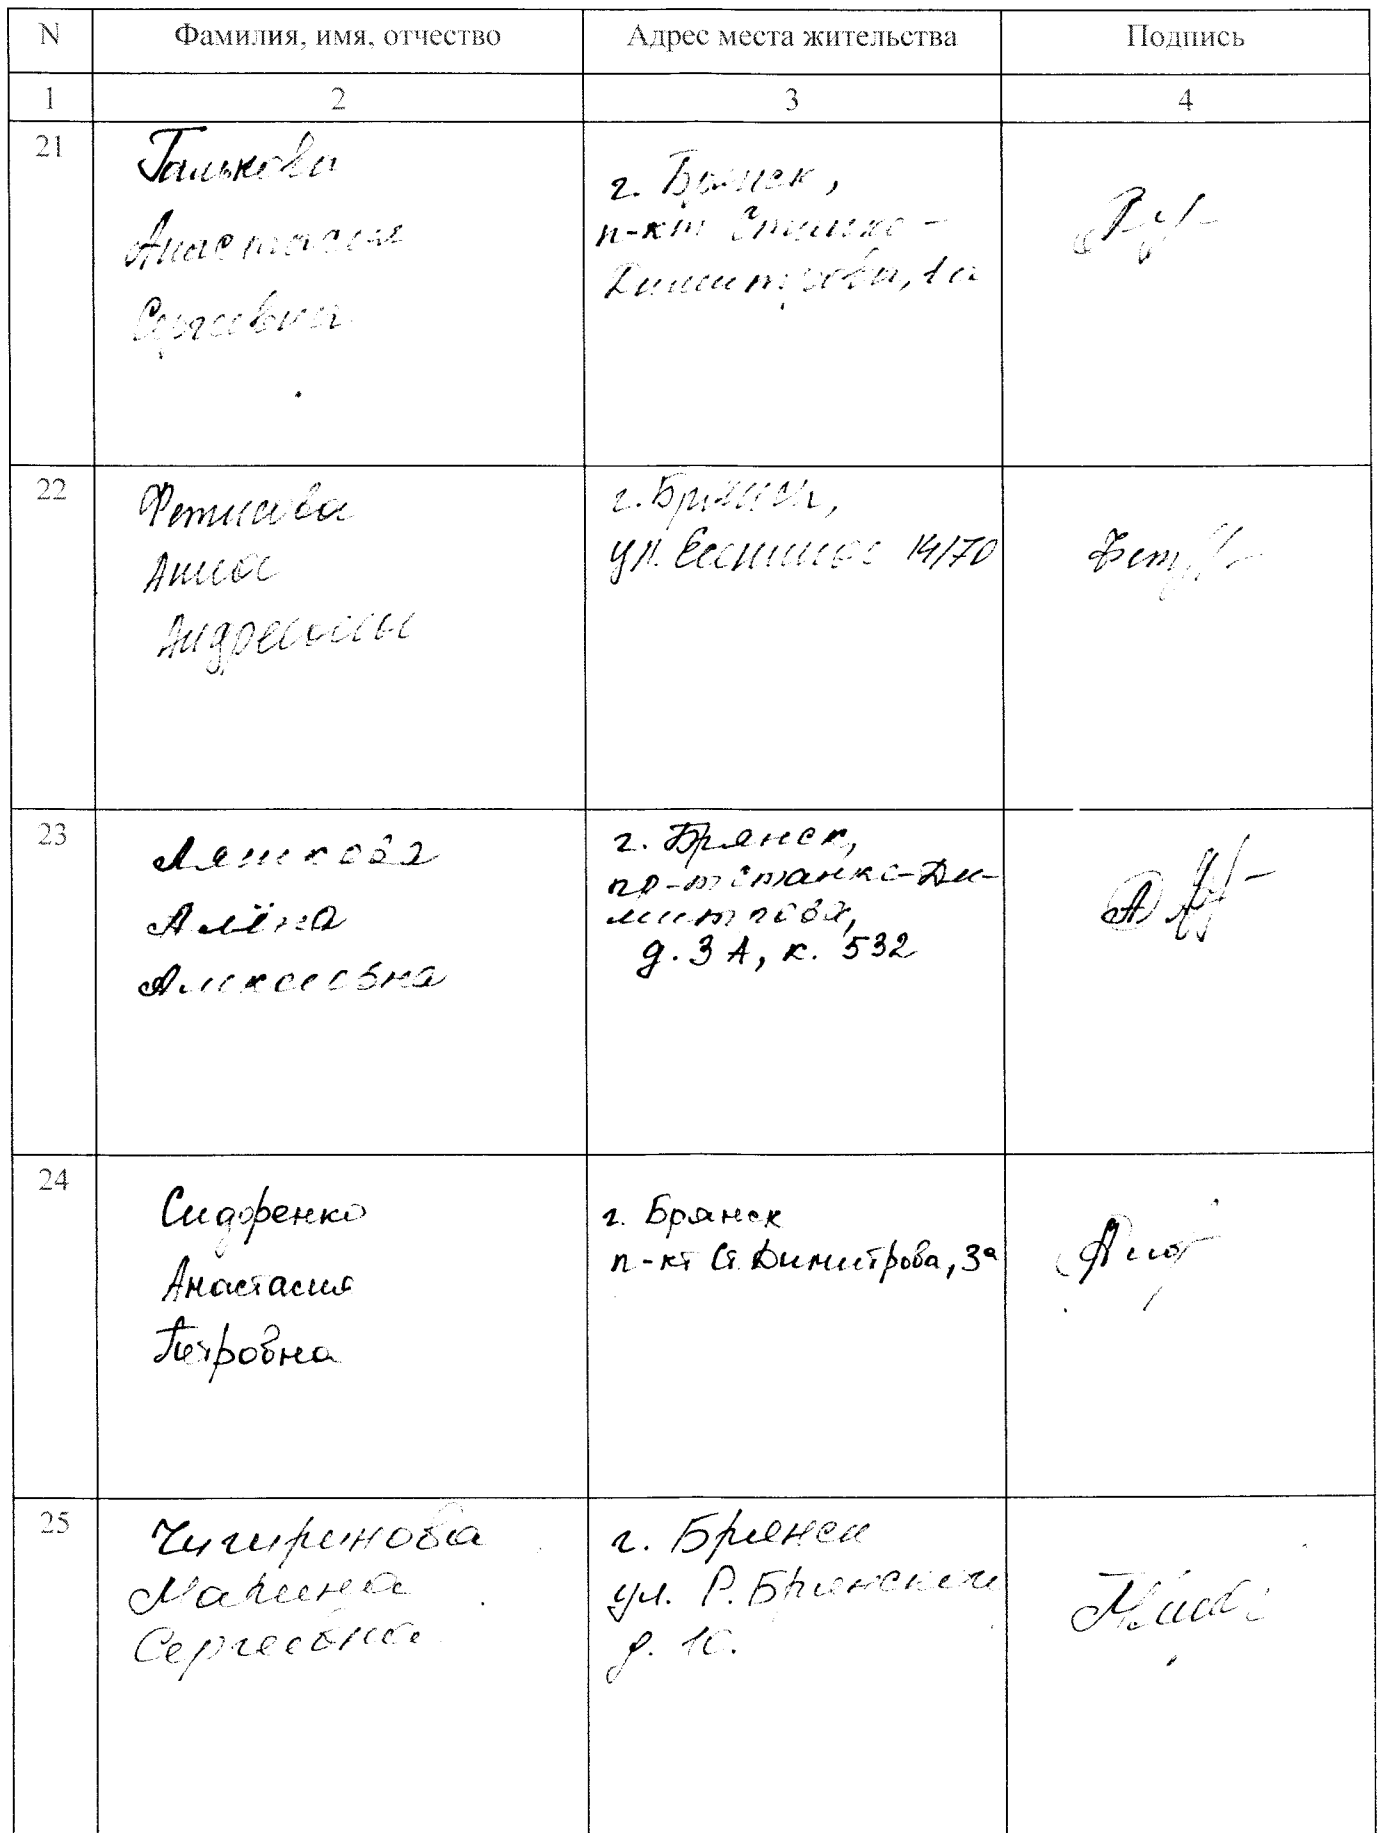 N Фамилия, имя, отчество Адрес места жительства Подпись
1 2 3 4
21
Галькова
Анастасия
Сергеевна
г. Брянск,
п-кт Станке-
Димитрова, 1а
22
Фетисова
Анна
Андреевна
г. Брянск,
ул. 14/70
23
Ляшкова
Алёна
Алексеевна
г. Брянск,
пр-т Станке-Ди-
митрова,
д. 3 А, к. 532
24
Сидоренко
Анастасия
Петровна
г. Брянск
п-кт Ст. Димитрова, 3а
25
Чигиринова
Марина
Сергеевна
г. Брянск
ул. Р. Брянского
д. 10.